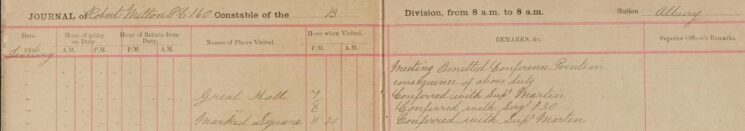 JOURNAL of Robert Milton PC 160 Constable of the B Division, from 8 a.m. to 8 a.m. Station Albury
Date. Hour of going on Duty. Hour of Return from Duty. Names of Places Visited. Hour when Visited. REMARKS, &c. Superior Officer's Remarks.
A.M. P.M. A.M. P.M. P.M. A.M.
Meeting Omitted Conference Points in
consequence of above duty
Great Hall 7 Conferred with Supt Martin
8 Conferred with Sergt 130
Market Square 11 20 Conferred with Supt Martin